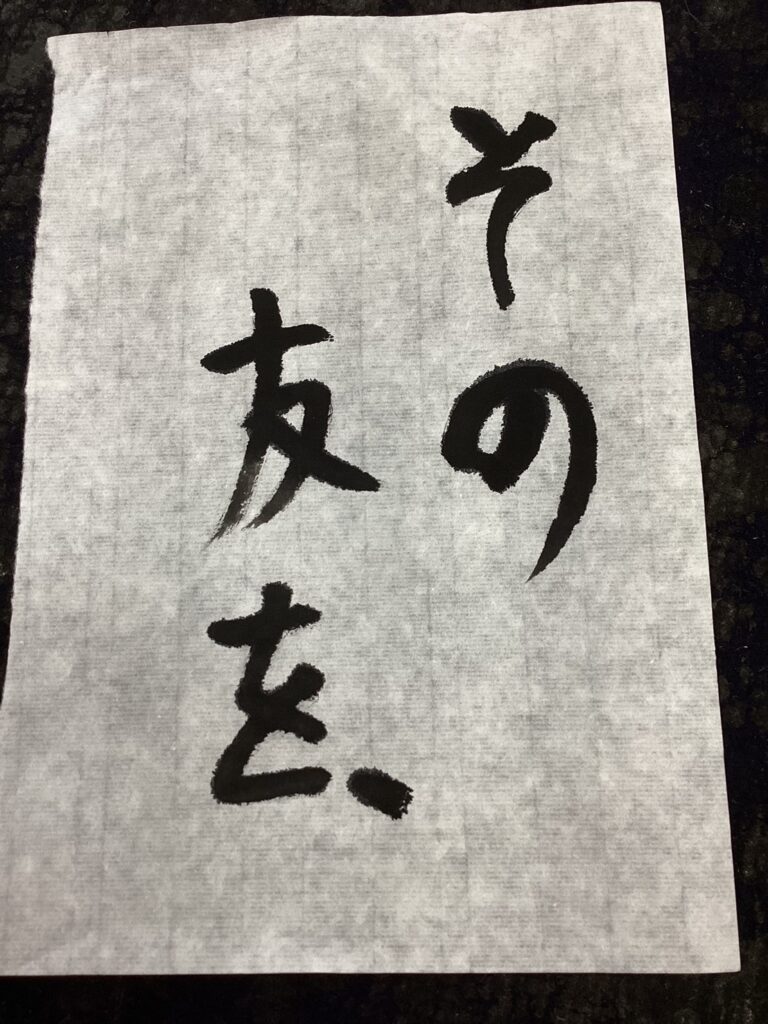 その
友を、